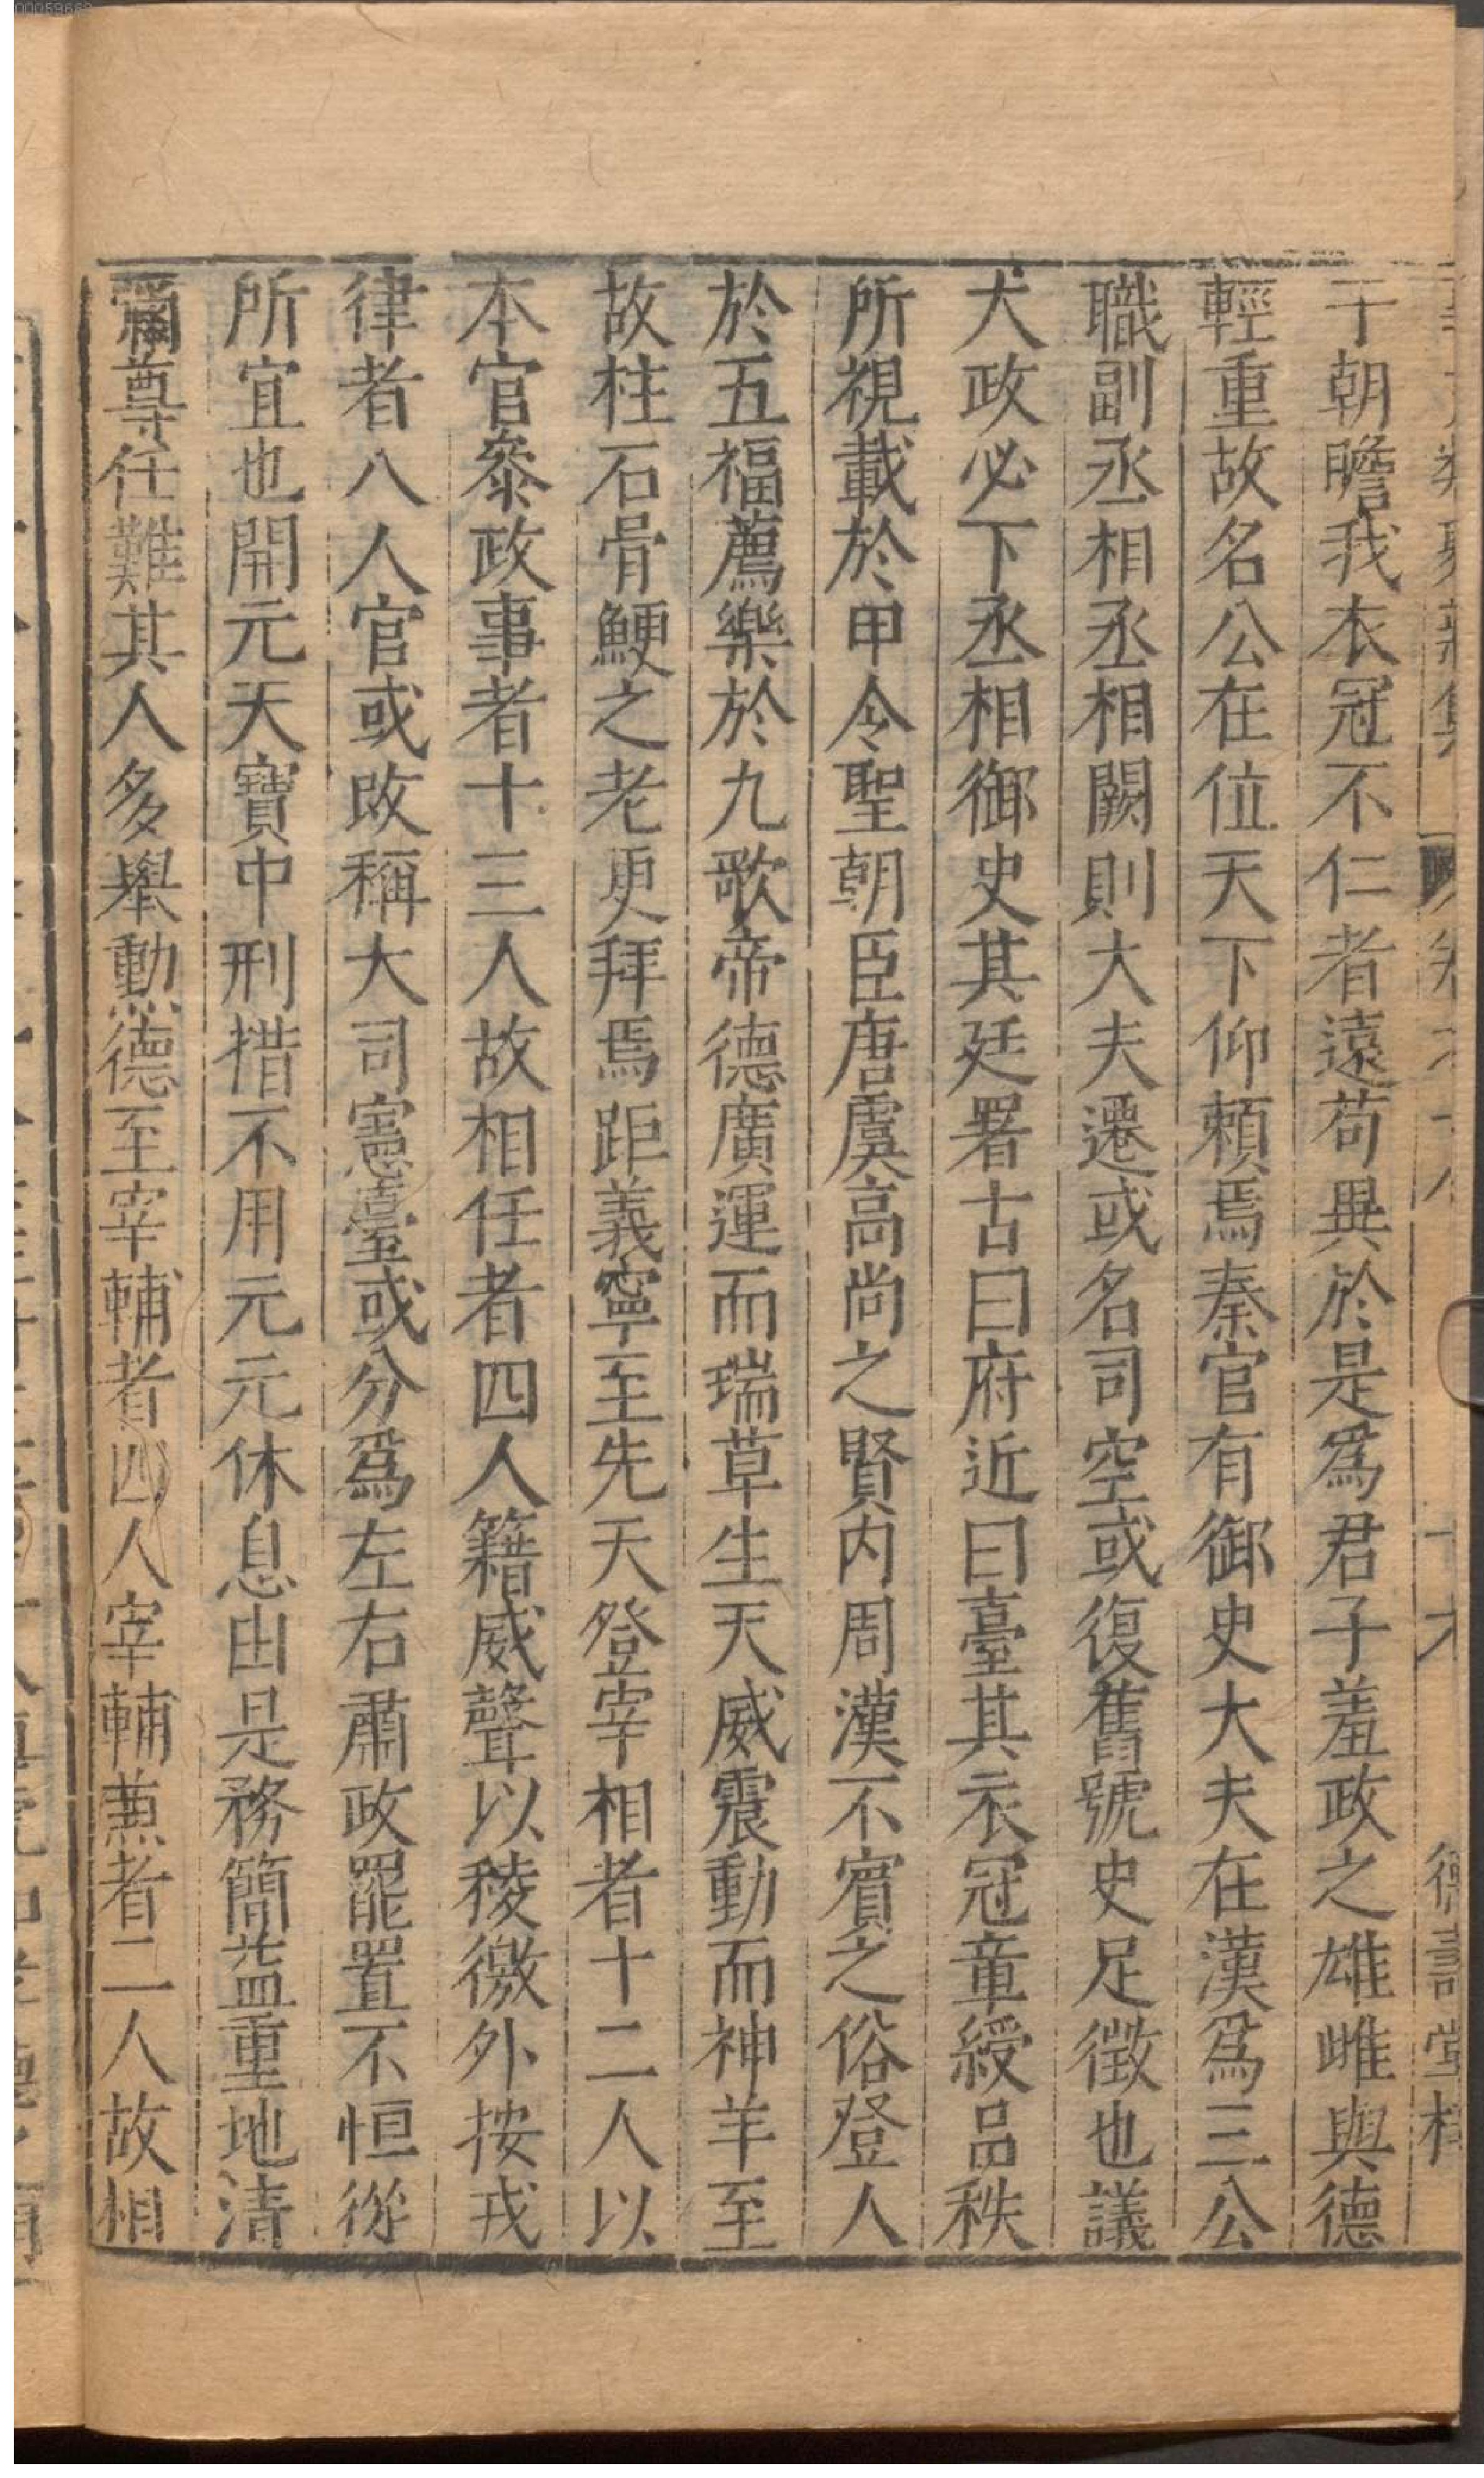 干朝瞻我衣冠不仁者遠苟異於是爲君子羞政之雄雌與德
輕重故名公在位天下仰賴焉秦官有御史大夫在漢爲三公
職副丞相丞相闕則大夫遷或名司空或復舊號史足徵也議
大政必下丞相御史其廷署古曰府近曰臺其衣冠章綬品秩
所視載於甲令聖朝臣唐虞高尚之賢内周漢不賓之俗登人
於五福薦樂於九歌帝德廣運而瑞草生天威震動而神羊至
故柱石骨鯁之老更拜焉距義寧至先天登宰相者十二人以
本官叅政事者十三人故相任者四人籍威聲以稜徼外按戎
律者八人官或改稱大司憲臺或分爲左右肅政罷置不恒從
所宜也開元天寶中刑措不用元元休息由是務簡益重地清
彌尊任難其人多舉勲德至宰輔者四人宰輔蒹者二人故相
德壽堂梓